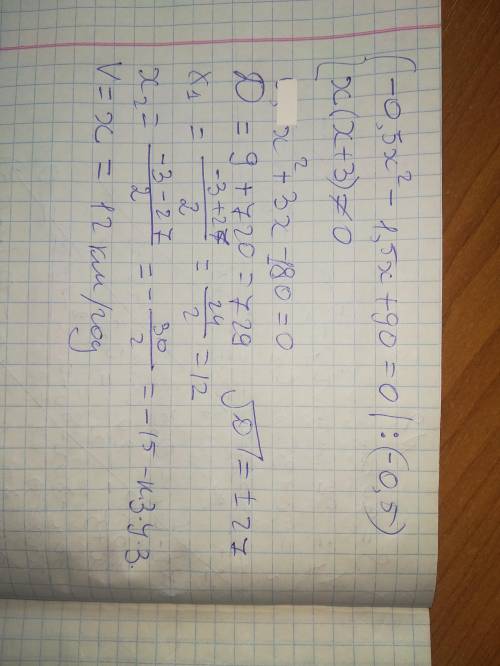 { -0,5x² - 1,5x + 90 = 0 | : (-0,5)
{ x(x+3) ≠ 0
x² + 3x - 180 = 0
D = 9 + 720 = 729 √D = ±27
x₁ = (-3+27)/2 = 24/2 = 12
x₂ = (-3-27)/2 = -30/2 = -15 - н.з.у.з.
V = x = 12 км/год